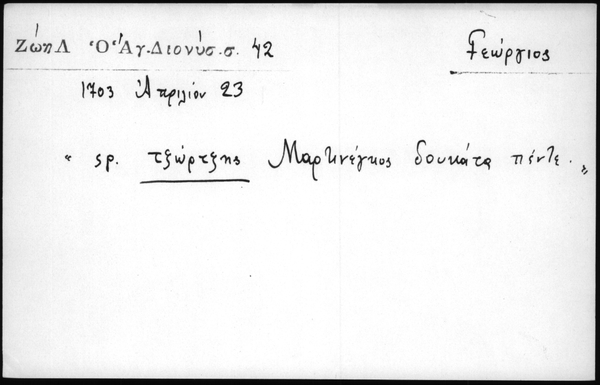 Ζώη Λ Ὁ Ἅγ. Διονύσ. σ. 42 Γεώργιος
1703 Ἀπριλίου 23
" sp. τζώρτζης Μαρτινέγκος δουκάτα πέντε. "